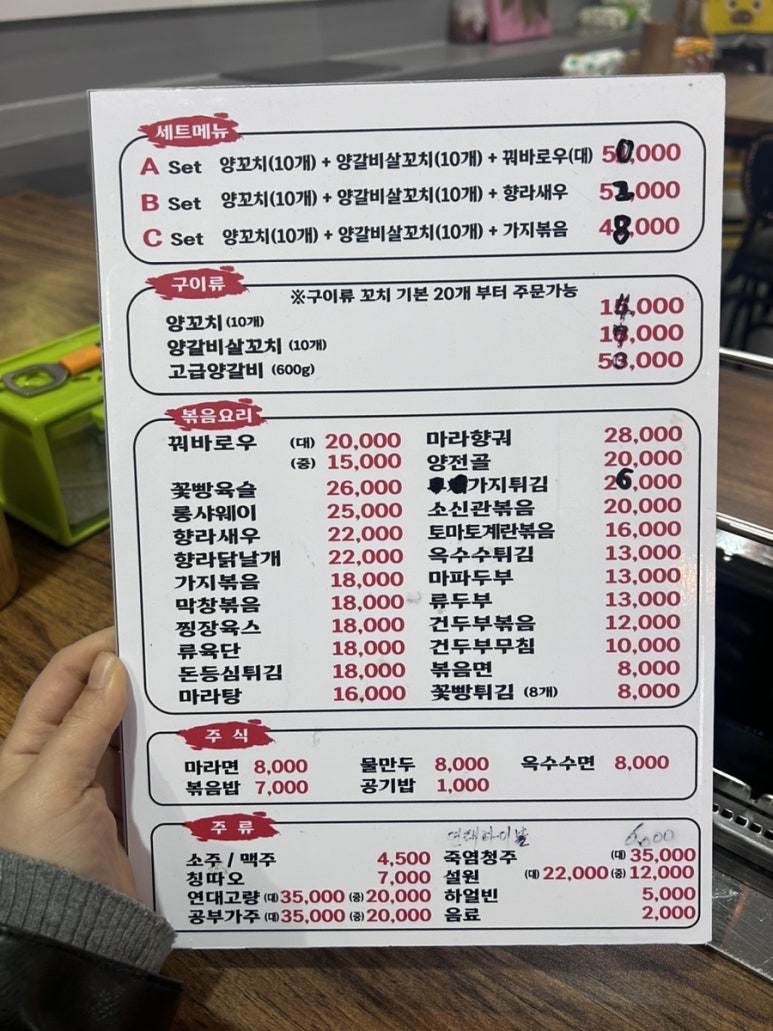 세트메뉴
A Set 양꼬치(10개) + 양갈비살꼬치(10개) + 꿔바로우(대) 50,000
B Set 양꼬치(10개) + 양갈비살꼬치(10개) + 향라새우 52,000
C Set 양꼬치(10개) + 양갈비살꼬치(10개) + 가지볶음 48,000
구이류
※구이류 꼬치 기본 20개 부터 주문가능
양꼬치 (10개)
양갈비살꼬치 (10개)
고급양갈비 (600g) 53,000
볶음요리
꿔바로우 (대) 20,000
(중) 15,000
꽃빵육슬 26,000
롱샤웨이 25,000
향라새우 22,000
향라닭날개 22,000
가지볶음 18,000
막창볶음 18,000
찡장육스 18,000
류육단 18,000
돈등심튀김 18,000
마라탕 16,000
마라향궈 28,000
양전골 20,000
가지튀김 26,000
소신관볶음 20,000
토마토계란볶음 16,000
옥수수튀김 13,000
마파두부 13,000
류두부 13,000
건두부볶음 12,000
건두부무침 10,000
볶음면 8,000
꽃빵튀김 (8개) 8,000
주 식
마라면 8,000 물만두 8,000 옥수수면 8,000
볶음밥 7,000 공기밥 1,000
주 류
소주 / 맥주 4,500
칭따오 7,000
연대고량 (대) 35,000 (중) 20,000
공부가주 (대) 35,000 (중) 20,000
죽염청주 (대) 35,000
설원 (대) 22,000 (중) 12,000
하얼빈 5,000
음료 2,000